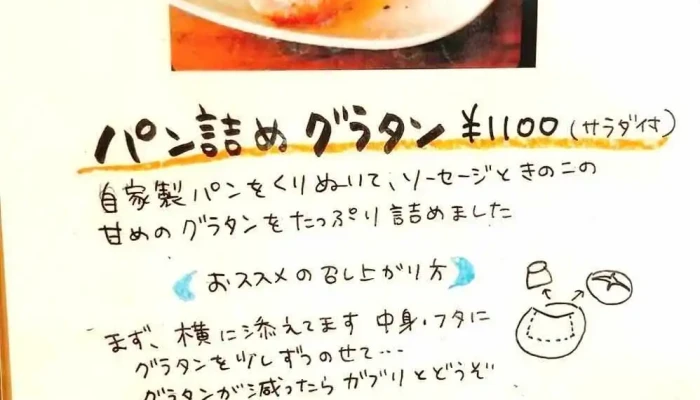 パン詰めグラタン ¥1100(サラダ付)
自家製パンをくりぬいて、ソーセージときのこの
甘めのグラタンをたっぷり詰めました
おススメの召し上がり方
まず、横に添えてます 中身・フタに
グラタンを少しずつのせて…
グラタンが減ったらガブリとどうぞ